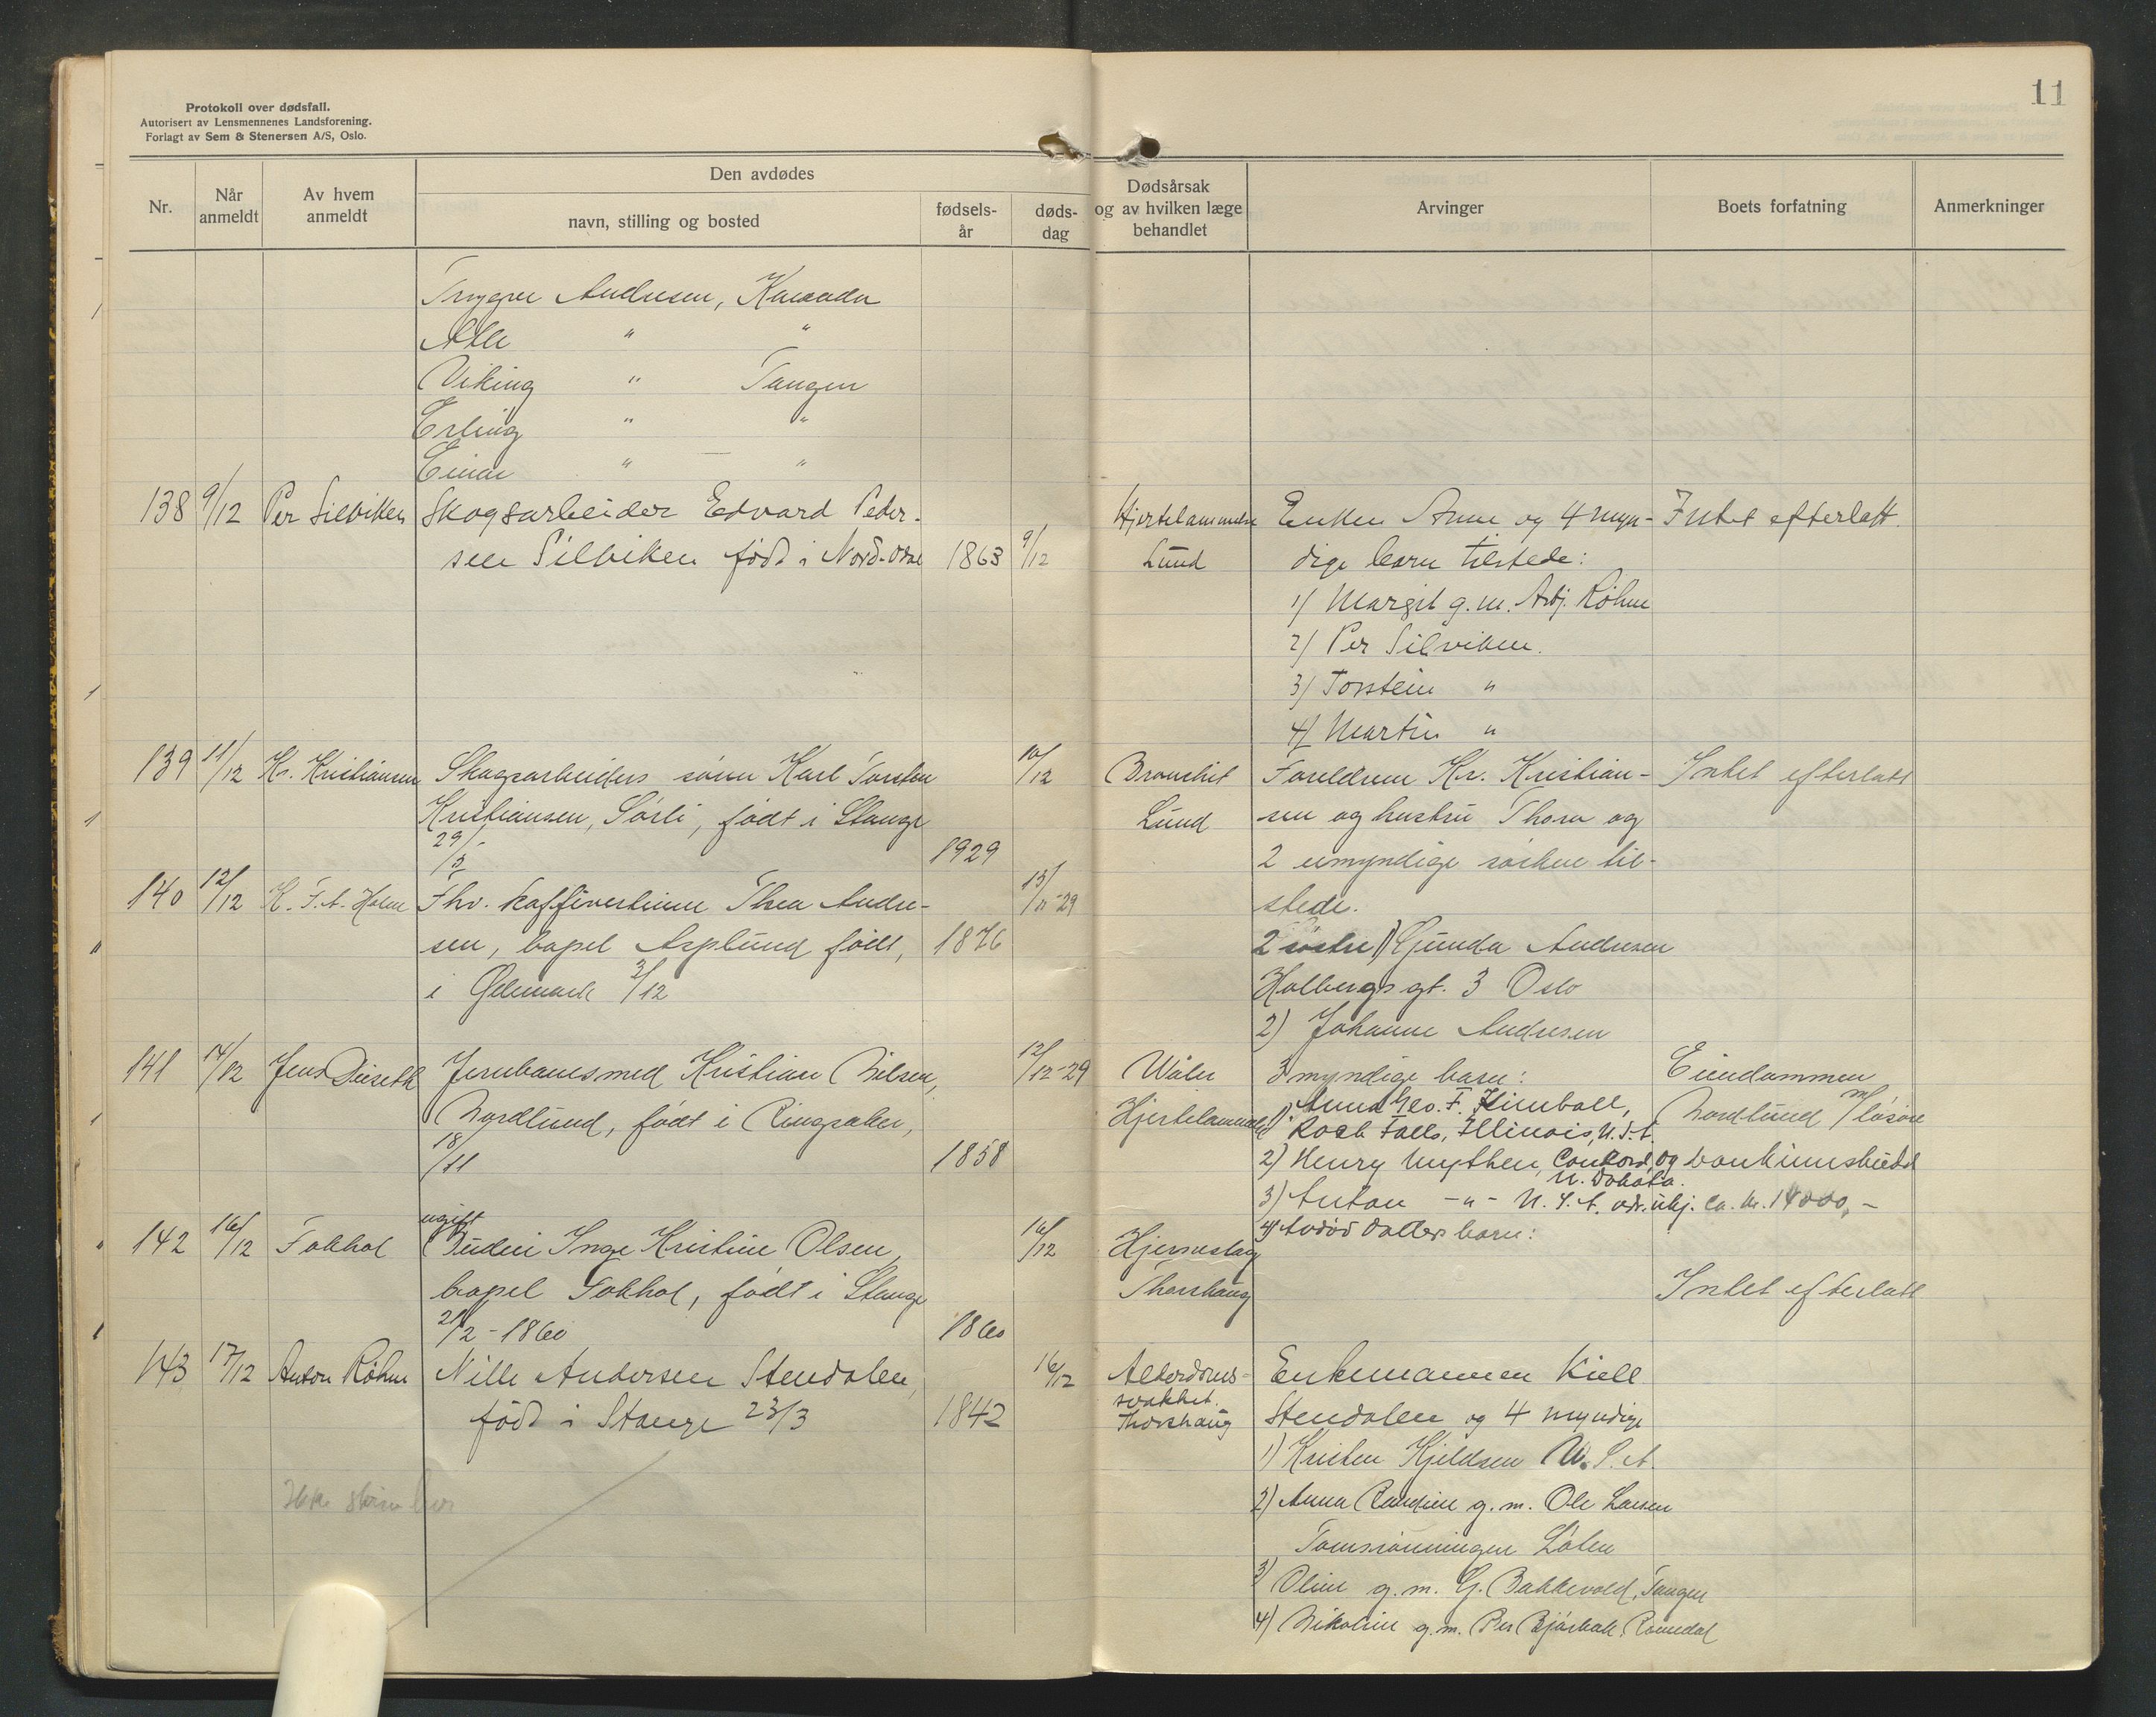 11
Protokoll over dødsfall.
Autorisert av Lensmennenes Landsforening.
Forlagt av Sem & Stenersen A/S, Oslo.
Nr.
Når anmeldt
Av hvem anmeldt
Den avdødes
navn, stilling og bosted
fødsels-år
døds-dag
Dødsårsak og av hvilken læge behandlet
Arvinger
Boets forfatning
Anmerkninger
Trygve Andresen, Kanada
" "
Viking " Tangen
Erling " "
Einar " "
138 9/12 Per Silviken Skogsarbeider Edvard Peder-
sen Silviken født i Nord-Odal 1863 9/12
Hjertelammelse
Lund
Enken Anne og 4 myn-
dige barn tilstede:
1) Margit g.m. Arbj. Röhne
2) Per Silviken.
3) Torstein "
4) Martin "
Intet efterlatt.
139 11/12 Kr. Kristiansen Skogsarbeiders sønn Karl Torsten 10/12
Kristiansen, Sörli, født i Stange
29/5 1929
Bronchit
Lund
Foreldrene Kr. Kristian-
sen og hustru Thora og
2 umyndige søsken til-
stede.
Intet efterlatt
140 12/12 K. F. A. Holm Fhv. kaffivertinne Thea Andre- 13/11-29
sen, bopel Asplund født, 1876
i 3/12
2 søstre 1) Gunda Andresen
Holbergs gt. 3 Oslo
2) Johanne Andresen
141 14/12 Jens Diseth Jernbanesmed Kristian Nilsen, 12/12-29
Nordlund, født i Ringsaker,
18/11 1858
Wåler
Hjertelammelse
3 myndige barn:
1) Anna Geo. F. Kimball,
Rock Falls, Illinois, U.S.A.
2) Henry Conkord,
N. Dakota.
3) Anton -"- U.S.A. adr. ukj.
4) Avdød datters barn:
Eiendommen
Nordlund m/ løsøre
og bankinnskudd
ca. kr. 14000,-
142 16/12 Fokhol ugift
Budeie Inge Kristine Olsen, 16/12
bopel Fokhol, født i Stange
21/2-1860 1860
Hjerneslag
Thorshaug
Intet efterlatt
143 17/12 Anton Röhne Nille Andersen Stendalen, 16/12
født i Stange 23/3 1842
Alderdoms-
svakhet.
Thorshaug
Enkemannen Kiell
Stendalen og 4 myndige
1) Kristen Kjeldsen U.S.A.
2) Anna Randine g.m. Ole Larsen
Løten
3) Oline g.m. G. Bakkevold, Tangen
4) Nikoline g.m. Per Bjørbak, Romedal
Ikke